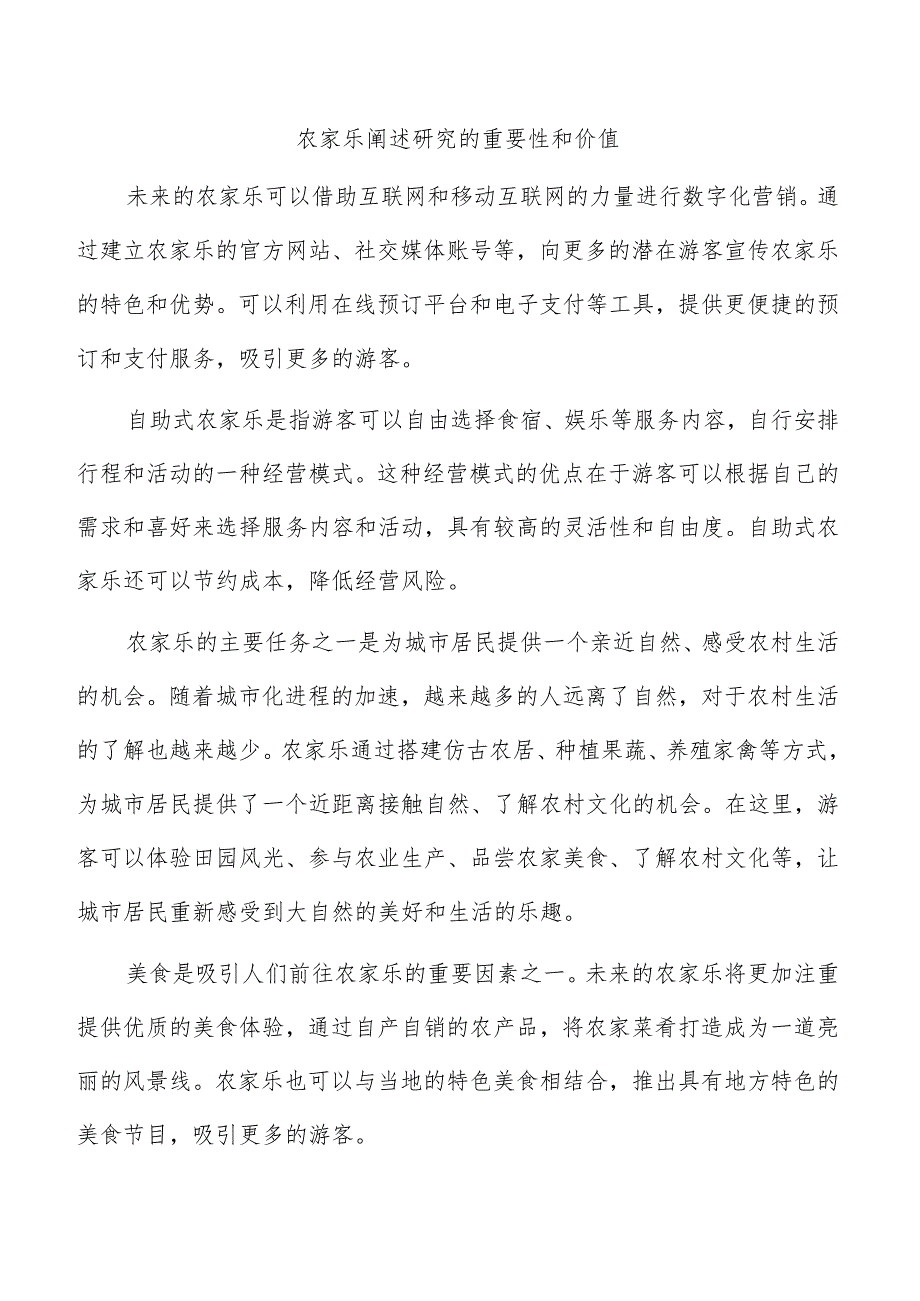 农家乐阐述研究的重要性和价值
未来的农家乐可以借助互联网和移动互联网的力量进行数字化营销。通
过建立农家乐的官方网站、社交媒体账号等，向更多的潜在游客宣传农家乐
的特色和优势。可以利用在线预订平台和电子支付等工具，提供更便捷的预
订和支付服务，吸引更多的游客。
自助式农家乐是指游客可以自由选择食宿、娱乐等服务内容，自行安排
行程和活动的一种经营模式。这种经营模式的优点在于游客可以根据自己的
需求和喜好来选择服务内容和活动，具有较高的灵活性和自由度。自助式农
家乐还可以节约成本，降低经营风险。
农家乐的主要任务之一是为城市居民提供一个亲近自然、感受农村生活
的机会。随着城市化进程的加速，越来越多的人远离了自然，对于农村生活
的了解也越来越少。农家乐通过搭建仿古农居、种植果蔬、养殖家禽等方式，
为城市居民提供了一个近距离接触自然、了解农村文化的机会。在这里，游
客可以体验田园风光、参与农业生产、品尝农家美食、了解农村文化等，让
城市居民重新感受到大自然的美好和生活的乐趣。
美食是吸引人们前往农家乐的重要因素之一。未来的农家乐将更加注重
提供优质的美食体验，通过自产自销的农产品，将农家菜肴打造成为一道亮
丽的风景线。农家乐也可以与当地的特色美食相结合，推出具有地方特色的
美食节目，吸引更多的游客。